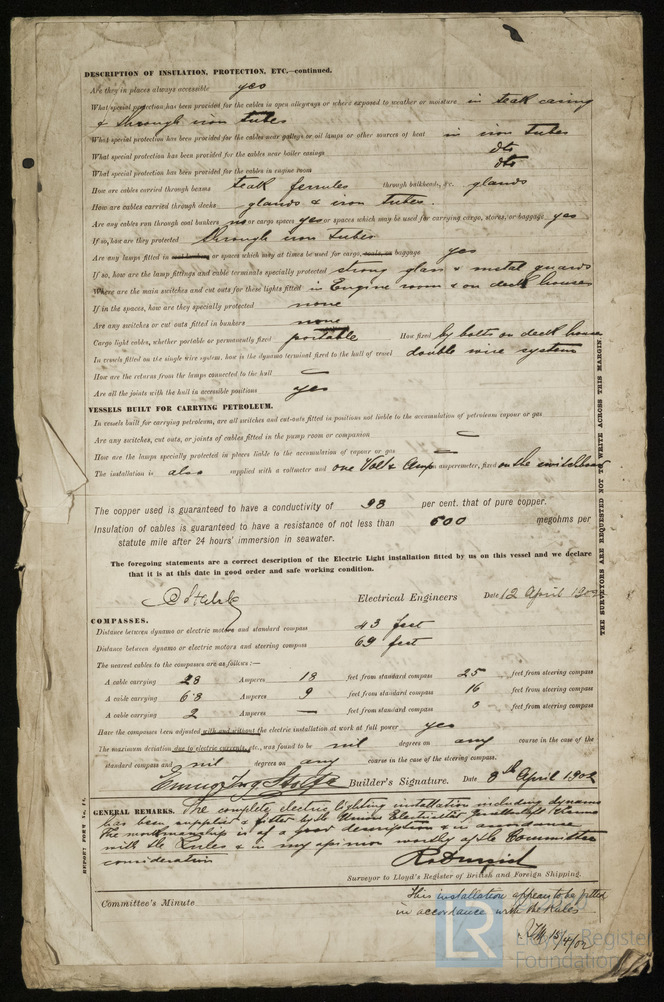 DESCRIPTION OF INSULATION, PROTECTION, ETC.—continued.
Are they in places always accessible yes
What special protection has been provided for the cables in open alleyways or where exposed to weather or moisture in teak casing
& through iron tubes
What special protection has been provided for the cables near galleys or oil lamps or other sources of heat in iron tubes
What special protection has been provided for the cables near boiler casings dto
What special protection has been provided for the cables in engine room dto
How are cables carried through beams teak ferrules through bulkheads, &c. glands
How are cables carried through decks glands & iron tubes.
Are any cables run through coal bunkers no or cargo spaces yes or spaces which may be used for carrying cargo, stores, or baggage yes
If so, how are they protected through iron tubes
Are any lamps fitted in or spaces which may at times be used for cargo, coals, or baggage yes
If so, how are the lamp fittings and cable terminals specially protected strong glass & metal guards
Where are the main switches and cut outs for these lights fitted in Engine room & on deck houses
If in the spaces, how are they specially protected none
Are any switches or cut outs fitted in bunkers none
Cargo light cables, whether portable or permanently fixed portable How fixed by bolts on deck house
In vessels fitted on the single wire system, how is the dynamo terminal fixed to the hull of vessel double wire system
How are the returns from the lamps connected to the hull —
Are all the joints with the hull in accessible positions yes
VESSELS BUILT FOR CARRYING PETROLEUM.
In vessels built for carrying petroleum, are all switches and cut-outs fitted in positions not liable to the accumulation of petroleum vapour or gas
Are any switches, cut outs, or joints of cables fitted in the pump room or companion —
How are the lamps specially protected in places liable to the accumulation of vapour or gas —
The installation is also supplied with a voltmeter and one Volt & Amp an amperemeter, fixed on the switchboard
The copper used is guaranteed to have a conductivity of 98 per cent. that of pure copper.
Insulation of cables is guaranteed to have a resistance of not less than 600 megohms per
statute mile after 24 hours' immersion in seawater.
The foregoing statements are a correct description of the Electric Light installation fitted by us on this vessel and we declare
that it is at this date in good order and safe working condition.
Electrical Engineers Date 12 April 1902
COMPASSES.
Distance between dynamo or electric motors and standard compass 43 feet
Distance between dynamo or electric motors and steering compass 69 feet
The nearest cables to the compasses are as follows:—
A cable carrying 28 Amperes 18 feet from standard compass 25 feet from steering compass
A cable carrying 6·8 Amperes 9 feet from standard compass 16 feet from steering compass
A cable carrying 2 Amperes — feet from standard compass 3 feet from steering compass
Have the compasses been adjusted with and without the electric installation at work at full power yes
The maximum deviation due to electric currents, etc., was found to be nil degrees on any course in the case of the
standard compass and nil degrees on any course in the case of the steering compass.
Builder's Signature. Date 8th April 1902
GENERAL REMARKS. The complete electric lighting installation including dynamo
has been supplied & fitted by the Union
The workmanship is of a good description & in accordance
with the Rules & in my opinion worthy of the Committee
consideration
Surveyor to Lloyd's Register of British and Foreign Shipping.
Committee's Minute
This installation appears to be fitted
in accordance with the Rules
15/4/02
THE SURVEYORS ARE REQUESTED NOT TO WRITE ACROSS THIS MARGIN.
LR
Lloyd's Register
Foundation